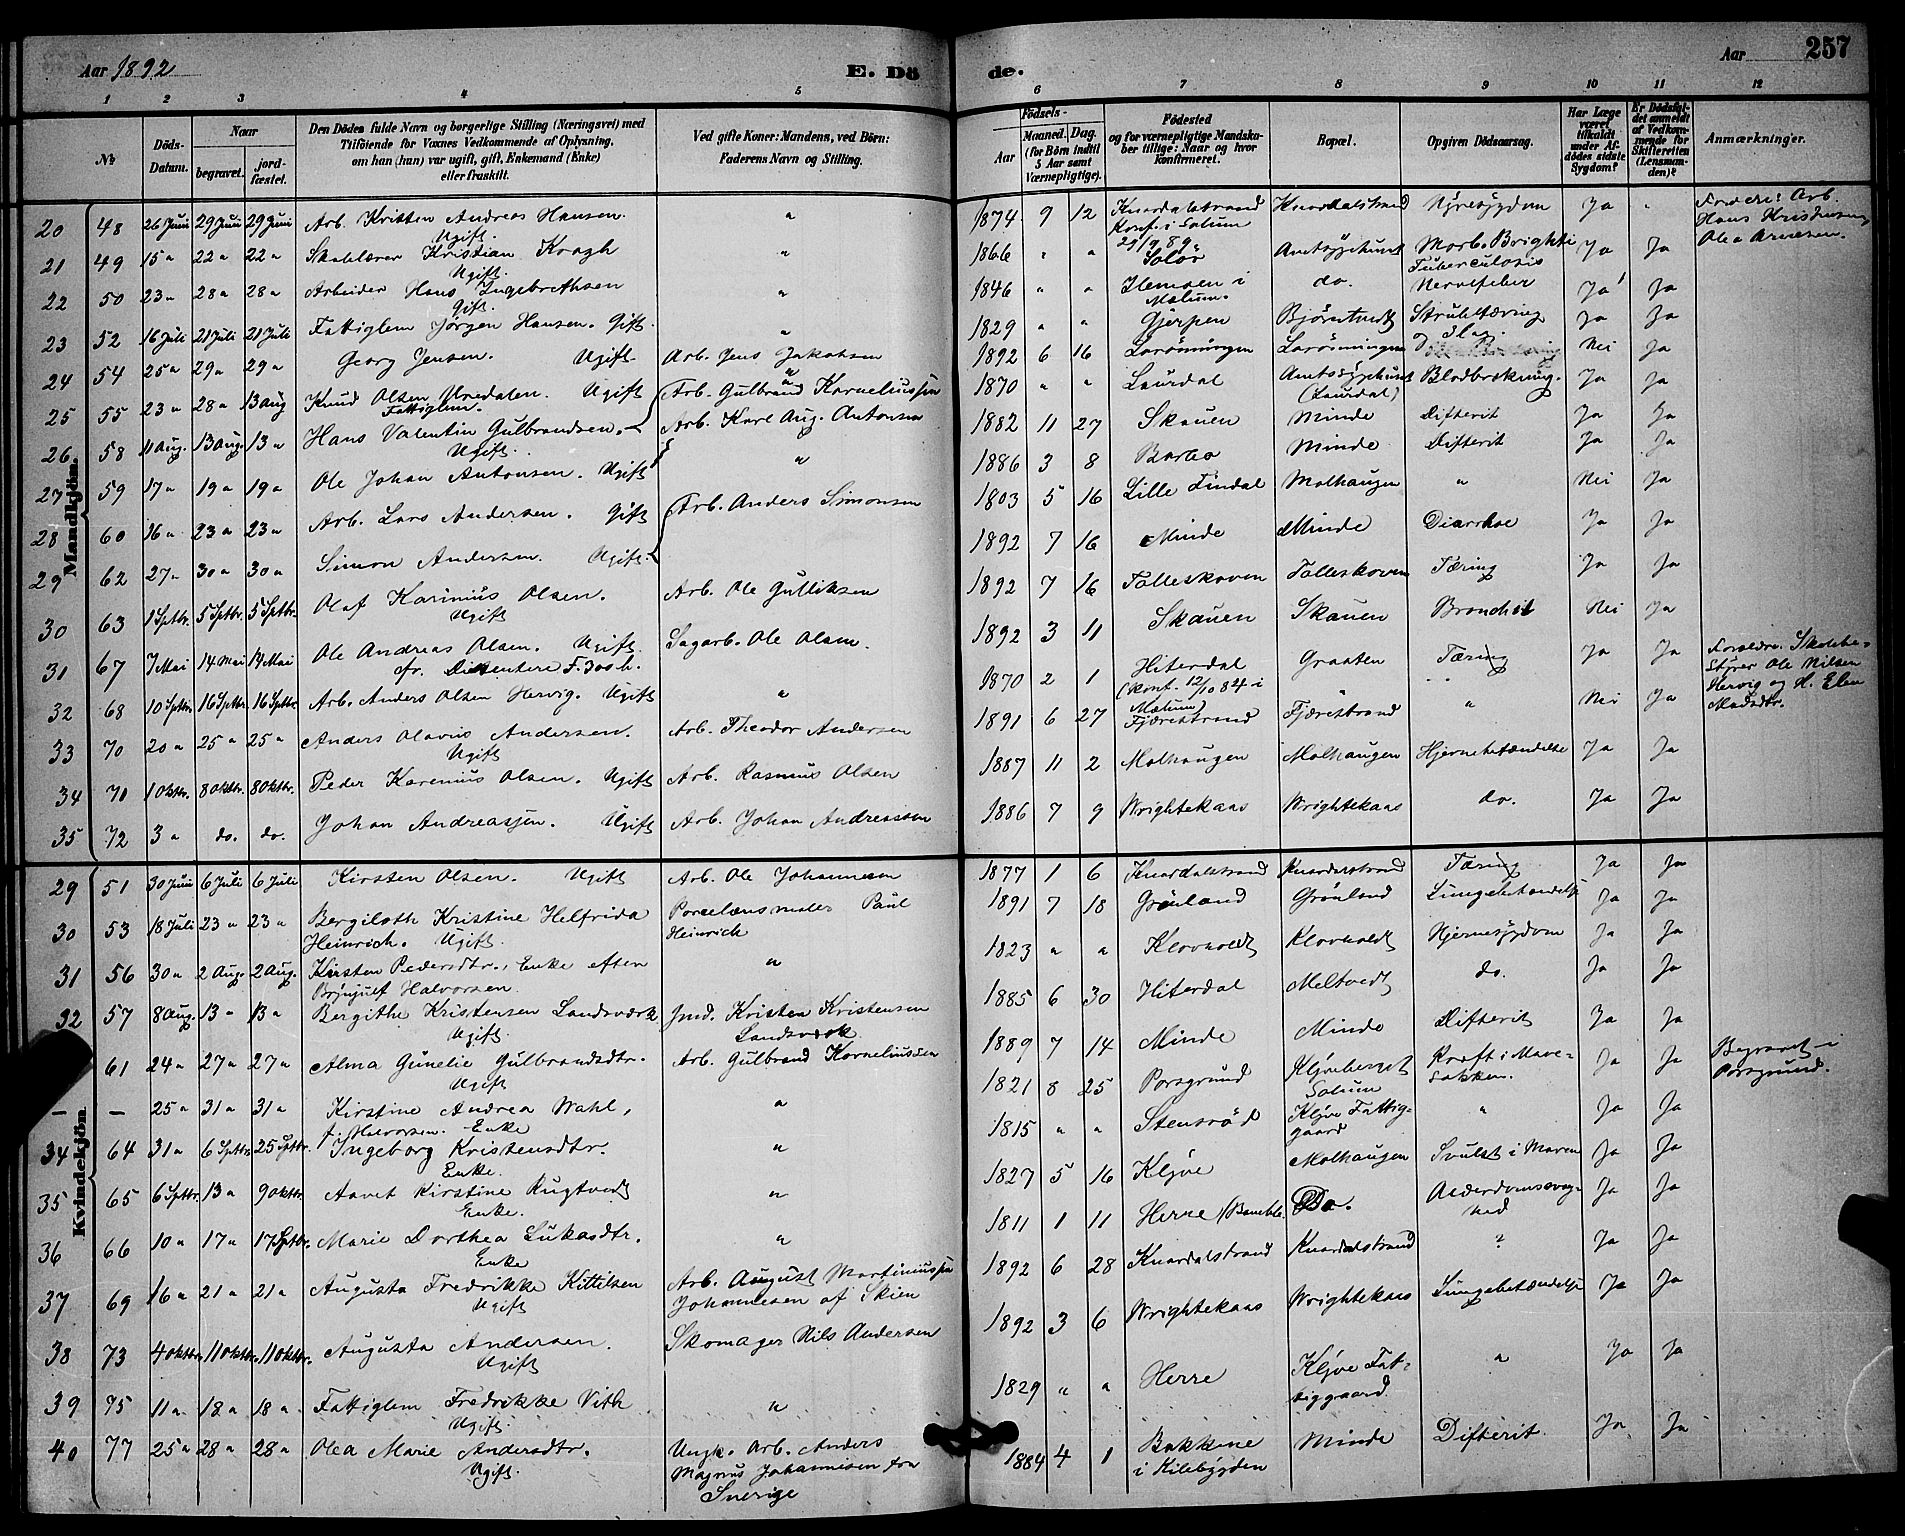 Aar 1892
E. Dö
de.
Aar
257
1 2 3 4 5 6 7 8 9 10 11 12
№
Döds-Datum.
Naar
begravet.
jordfæstet.
Den Dödes fulde Navn og borgerlige Stilling (Næringsvei) med
Tilföiende for Voxnes Vedkommende af Oplysning,
om han (hun) var ugift, gift, Enkemand (Enke)
eller fraskilt.
Ved gifte Koner: Mandens, ved Börn:
Faderens Navn og Stilling.
Födsels-
Aar
Maaned. Dag.
(for Börn indtil
5 Aar samt
Værnepligtige).
Födested
og for værnepligtige Mandskaber tillige: Naar og hvor
konfirmeret.
Bopæl.
Opgiven Dödsaarsag.
Har Læge været tilkaldt under Afdödes sidste Sygdom?
Er Dödsfaldet anmeldt af Vedkommende for Skifteretten (Lensmanden)?
Anmærkninger.
Mandkjön.
20 48 26 Juni 29 Juni 29 Juni Arb. Kristen Andreas Hansen. Ugift. " 1874 9 12 Knardalstrand Konf. i Solum Knardalstrand Nyresygdom Ja Forældre: Arb. Hans Kristensen Olea Arnesen.
21 49 15 " 22 " 22 " Kristian Kragh Ugift. " 1866 " " Solør Amtssygehuset Morb. Brighti Tuberculosis Ja Ja
22 50 23 " 28 " 28 " Arbeider Hans Ingebrethsen Gift. " 1846 " " i Mælum. do. Nervefeber Ja Ja
23 52 16 Juli 21 Juli 21 Juli Fattiglem Jørgen Hansen. Gift. " 1829 " " Gjerpen Bjørntvedt Strubetæring Ja Ja
24 54 25 " 29 " 29 " Georg Jensen. Ugift. Arb. Jens Jakobsen 1892 6 16 Larønningen Larønningen Nei Ja
25 55 23 " 28 " 13 Aug Knud Olsen Fattiglem. Ugift " 1870 " " Laurdal Amtssygehuset (Laurdal) Blodbrækning. Ja Ja
26 58 11 Aug. 13 Aug. 13 " Hans Valentin Gulbrandsen. Ugift. Arb. Gulbrand Korneliussen 1882 11 27 Skauen Minde Difterit Ja Ja
27 59 17 " 19 " 19 " Ole Johan Antonsen. Ugift Arb. Karl Aug. Antonsen 1886 3 8 Barbo Minde Difterit Ja Ja
28 60 16 " 23 " 23 " Arb. Lars Andersen. Gift " 1803 5 16 Lille Findal Molhaugen " Nei Ja
29 62 27 " 30 " 30 " Simon Andersen. Ugift. Arb. Anders Simonsen 1892 7 16 Minde Minde Diarrhoe Ja Ja
30 63 1 Septbr. 5 Septbr. 5 Septbr. Olaf Karinius Olsen. Ugift Arb. Ole Gulliksen 1892 7 16 Falleskoven Falleskoven Tæring Ja Ja
31 67 7 Mai 14 Mai 14 Mai Ole Andreas Olsen. Ugift Sagarb. Ole Olsen. 1892 3 11 Skauen Skauen Bronchit Nei Ja
32 68 10 Septbr. 16 Septbr. 16 Septbr. Arb. Anders Olsen Hervig. Ugift " 1870 2 1 Hiterdal (Konf. 12/10 84 i Mælum) Graaten Tæring Ja Ja Forældre: Skolebestyrer Ole Nilsen Hervig og H. Elen Madsdtr.
33 70 20 " 25 " 25 " Anders Olavus Andersen. Ugift Arb. Theodor Andersen 1891 6 27 Fjærestrand Fjærestrand " Nei Ja
34 71 1 Oktbr. 8 Oktbr. 8 Oktbr. Peder Karenius Olsen. Ugift Arb. Rasmus Olsen 1887 11 2 Molhaugen Molhaugen Hjernebetændelse Ja Ja
35 72 3 " do. do. Johan Andreassen. Ugift Arb. Johan Andreassen 1886 7 9 Wrightekaas Wrightekaas do. Ja Ja
Kvindekjön.
29 51 30 Juni 6 Juli 6 Juli Kirsten Olsen. Ugift Arb. Ole Johannesen 1877 1 6 Knardalstrand Knardalstrand Tæring Ja Ja
30 53 18 Juli 23 " 23 " Bergiloth Kristine Helfrida Heinrich. Ugift. Porcelænsmaler Paul Heinrich 1891 7 18 Grønland Grønland Lungebetændelse Ja Ja
31 56 30 " 2 Aug. 2 Aug. Kirsten Pedersdtr., Enke efter Brynjulf Halvorsen. " 1823 " " Klovholdt Klovholdt Hjernesygdom Ja Ja
32 57 8 Aug. 13 " 13 " Bergithe Kristensen Landsværk Ugift Jmd. Kristen Kristensen Landsværk 1885 6 30 Hiterdal Meltvedt do. Ja Ja
61 24 " 27 " 27 " Alma Gunelie Gulbrandsdtr. Ugift Arb. Gulbrand Korneliussen 1889 7 14 Minde Minde Difterit Ja Ja
— — 25 " 31 " 31 " Kirstine Andrea Wahl, f. Halvorsen. Enke " 1821 8 25 Porsgrund Klyveberget Solum Kræft i Mavesækken. Ja Ja Begravet i Porsgrund.
34 64 31 " 6 Septbr. 25 Septbr. Ingeborg Kristensdtr. Enke. " 1815 " " Stensrød Klyve Fattiggaard " Ja Ja
35 65 6 Septbr. 13 " 9 Oktbr. Aavet Kirstine Rugtvedt Enke. " 1827 5 16 Klyve Molhaugen Svulst i Maven Ja Ja
36 66 10 " 17 " 17 Septbr. Marie Dorthea Lukasdtr. Enke " 1811 1 11 Herre (Bamble Do. Alderdomssvaghed Ja Ja
37 69 16 " 21 " 21 " Augusta Fredrikke Kittilsen Ugift Arb. August Martiniussen Johannesen af Skien 1892 6 28 Knardalstrand Knardalstrand ? Ja Ja
38 73 4 Oktbr. 11 Oktbr. 11 Oktbr. Augusta Andersen. Ugift Skomager Nils Andersen 1892 3 6 Wrightekaas Wrightekaas Lungebetændelse Ja Ja
39 75 11 " 18 " 18 " Fattiglem Fredrikke Vith Ugift. " 1829 " " Herre Klyve Fattiggaard. " Ja Ja
40 77 25 " 28 " 28 " Olea Marie Andersdtr. Ugift. Ungk. Arb. Anders Magnus Johannesen fra Sverige 1884 4 1 Bakkene i Kilebygden Minde Difterit. Ja Ja